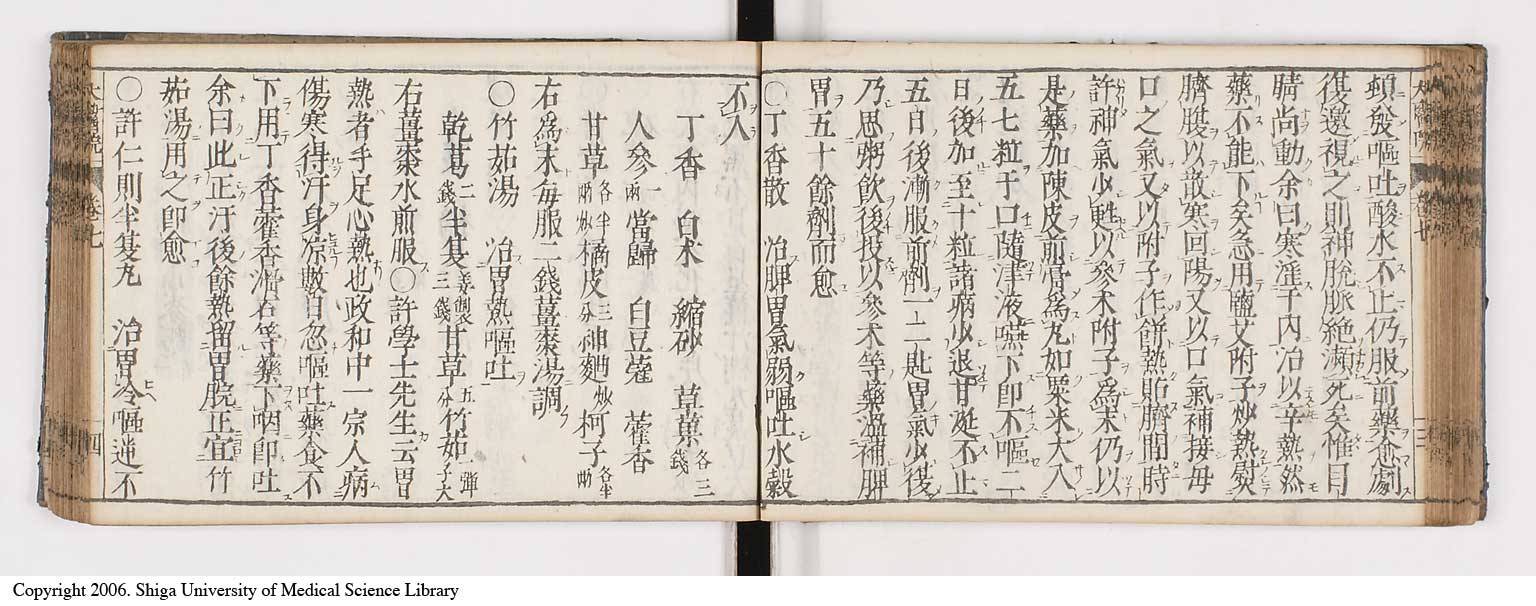 頓發嘔吐酸水不止仍服前藥愈劇
復邀視之則神脫脈絶瀕死矣惟目
睛尚動余曰寒淫于內治以辛熱然
藥不能下矣急用鹽艾附子炒熱熨
臍腹以散寒回陽又以口氣補接毋
口之氣又以附子作餅熱貼臍間時
許神氣少甦以參朮附子爲末仍以
是藥加陳皮煎膏爲丸如粟米大入
五七粒于口隨津液嚥下即不嘔二
日後加至十粒諸病少退甘涎不止
五日後漸服前劑一二匙胃氣少復
乃思粥飲後投以參朮等藥溫補脾
胃五十餘劑而愈
〇丁香散 治脾胃氣弱嘔吐水穀
不入
丁香 白朮 縮砂 草菓各三錢
人參一兩當歸 白豆蔻 藿香
甘草各半兩炒橘皮三分神麯炒柯子各半兩
右爲末每服二錢薑棗湯調
〇竹茹湯 治胃熱嘔吐
乾葛二錢半夏姜製三錢甘草五分竹茹彈子大
右薑棗水煎服〇許學士先生云胃
熱者手足心熱也政和中一宗人病
傷寒得汗身凉數日忽嘔吐藥食不
下用丁香藿香滑石等藥下咽即吐
余曰此正汗後餘熱留胃脘正宜竹
茹湯用之即愈
〇許仁則半夏丸 治胃冷嘔逆不
卷七
十四